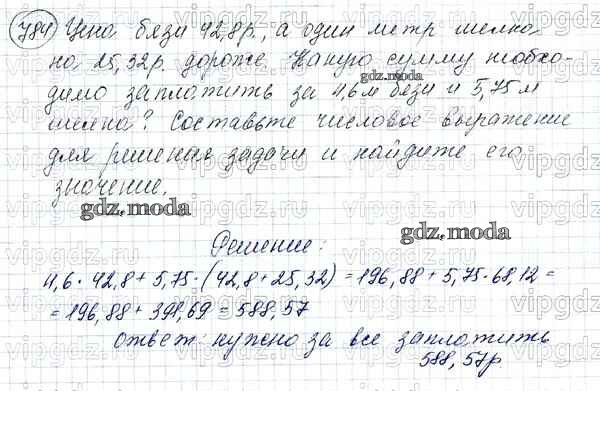 784 Цена бязи 42,8р., а один метр шелка
на 25,32р. дороже. Какую сумму необхо-
димо заплатить за 4,6м бязи и 5,75м
шелка? Составьте числовое выражение
для решения задачи и найдите его
значение.
gdz.moda
gdz.moda
gdz.moda
Решение:
4,6 · 42,8 + 5,75 · (42,8 + 25,32) = 196,88 + 5,75 · 68,12 =
= 196,88 + 391,69 = 588,57
ответ: нужно за все заплатить
588,57р
vipgdz.ru